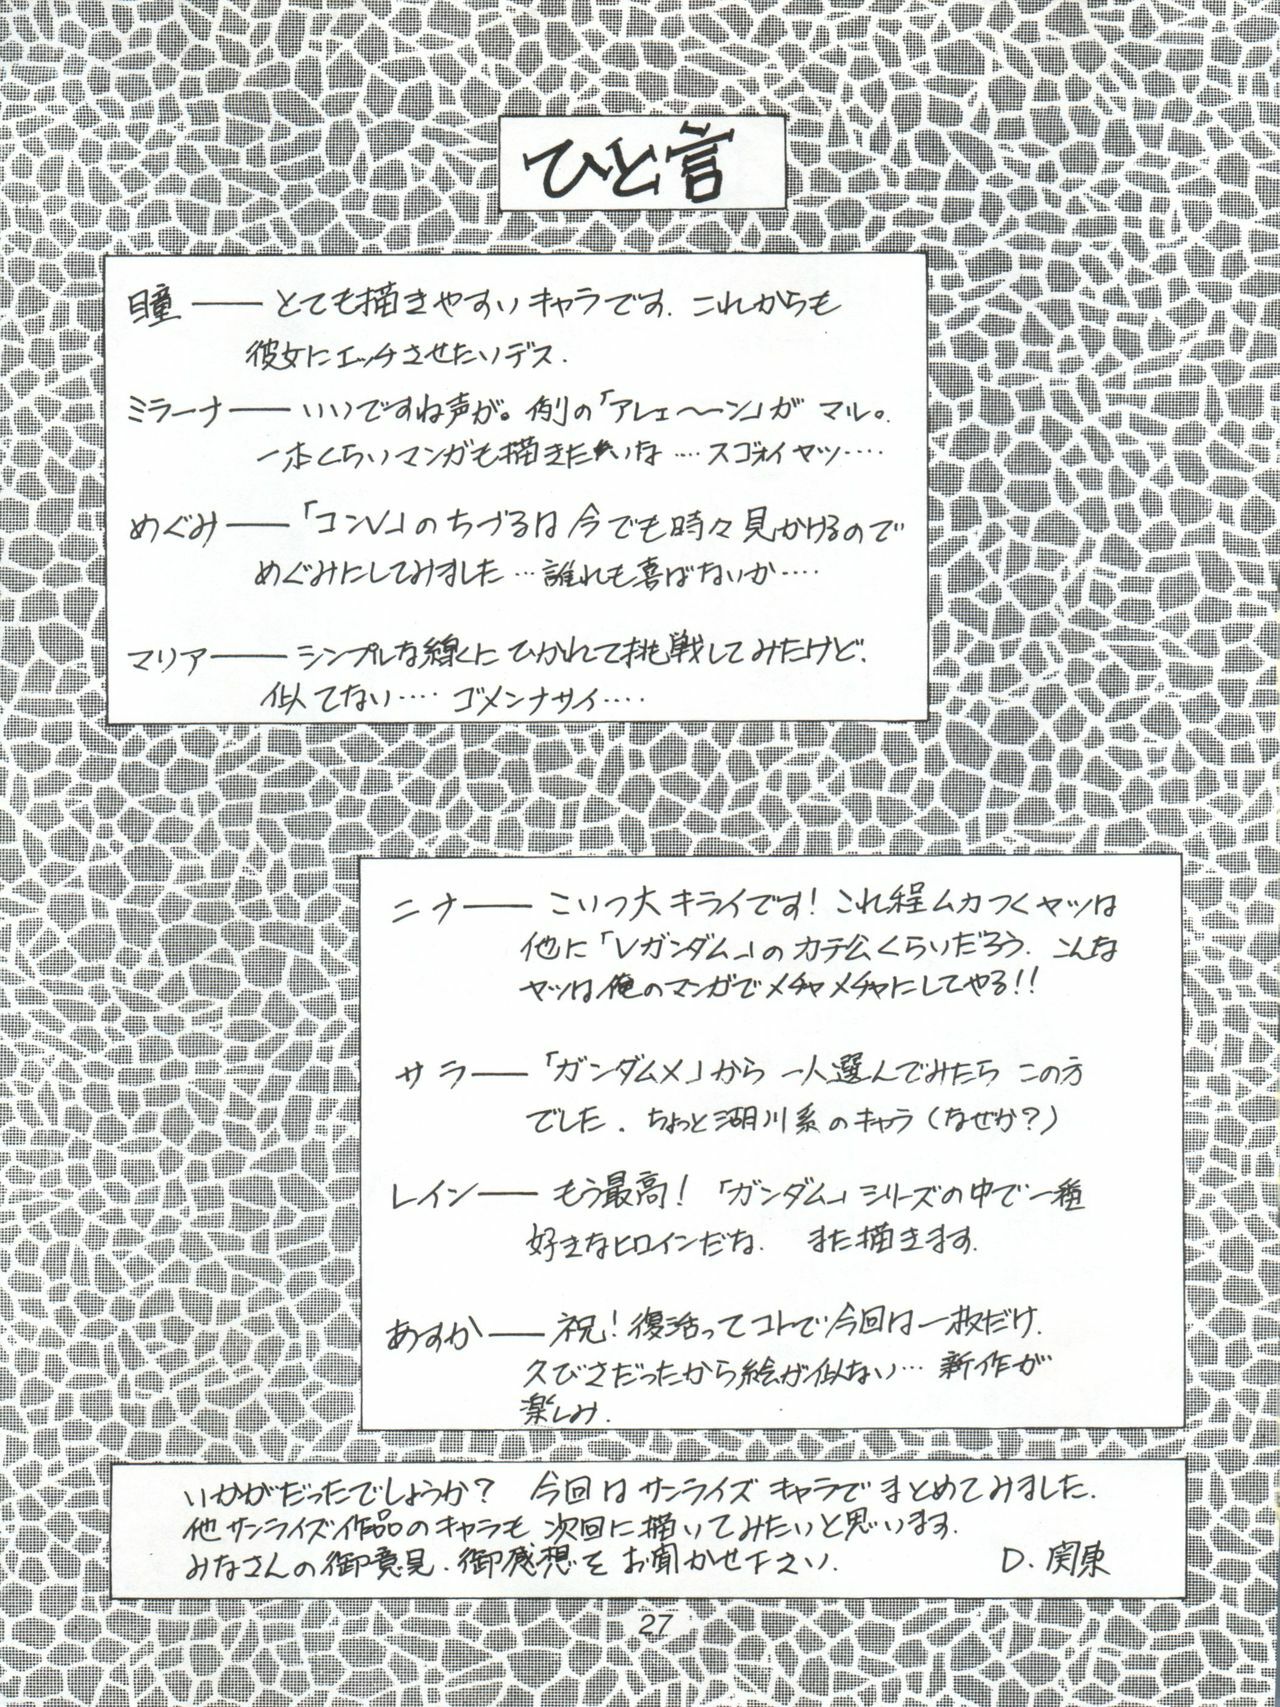 ひと言
瞳 ── とても描きやすいキャラです. これからも
彼女にエッチさせたいデス.
ミラーナ ── いいですね声が。例の「アレェ〜ーン」が マル。
一本くらいマンガも描きたいな … スゴォイヤツ‥‥
めぐみ ── 「コンV」のちづるは今でも時々見かけるので
めぐみにしてみました … 誰れも喜ばないか‥‥
マリア ── シンプルな線にひかれて挑戦してみたけど.
似てない‥‥ ゴメンナサイ‥‥
ニナ ── こいつ大キライです! これ程ムカつくヤツは
他に「Vガンダム」のカテ公くらいだろう. こんな
ヤツは俺のマンガでメチャメチャにしてやる!!
サラ ── 「ガンダムX」から 一人選んでみたら この方
でした. ちょっと湖川系のキャラ(なぜか?)
レイン ── もう最高! 「ガンダム」シリーズの中で一種
好きなヒロインだな. また描きます.
あすか ── 祝! 復活ってコトで今回は一枚だけ.
久びさだったから絵が似ない… 新作が
楽しみ.
いかがだったでしょうか? 今回はサンライズ キャラでまとめてみました.
他サンライズ作品のキャラも 次回に描いてみたいと思います.
みなさんの御意見.御感想を お聞かせ下さい. D.関東
27